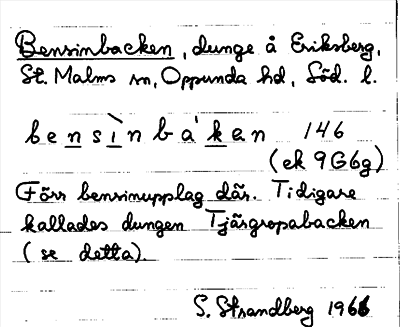 Bensinbacken, dunge å Eriksberg,
St. Malms sn, Oppunda hd, Söd. l.
bensìnbákan 146
(ek 9G6g)
Förr bensinupplag där. Tidigare
kallades dungen Tjärgropabacken
(se detta).
S. Strandberg 1966